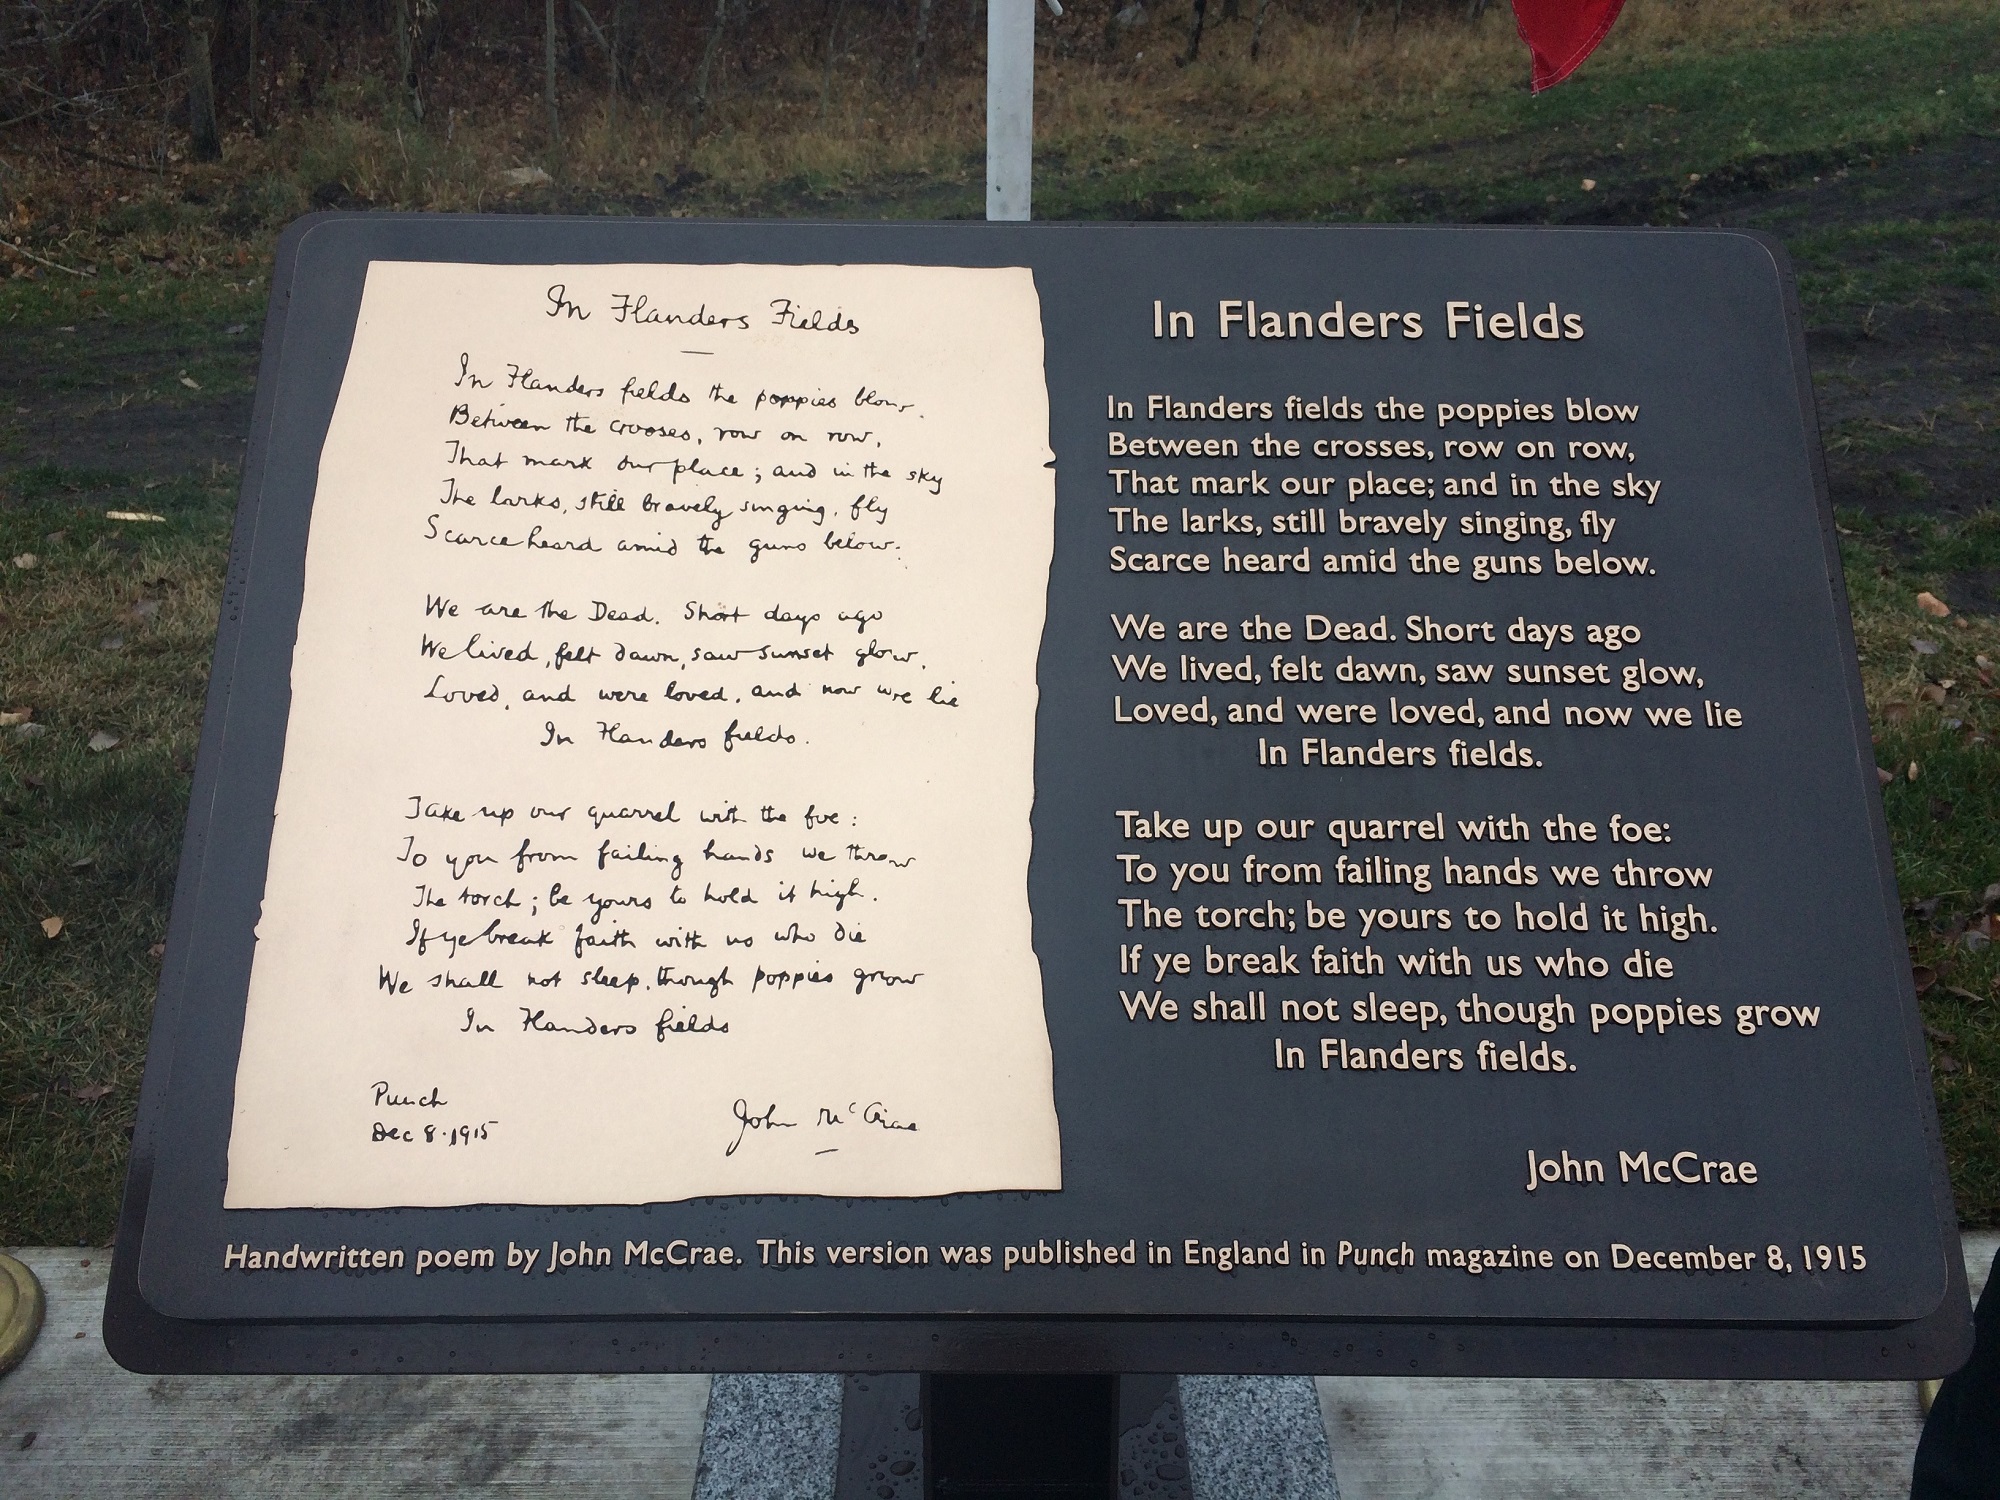 In Flanders Fields
In Flanders fields the poppies blow.
Between the crosses, row on row,
That mark our place; and in the sky
The larks, still bravely singing, fly
Scarce heard amid the guns below.
We are the Dead. Short days ago
We lived, felt dawn, saw sunset glow,
Loved, and were loved, and now we lie
In Flanders fields.
Take up our quarrel with the foe:
To you from failing hands we throw
The torch; be yours to hold it high.
If ye break faith with us who die
We shall not sleep, though poppies grow
In Flanders fields
Punch
Dec 8·1915
John McCrae
In Flanders Fields
In Flanders fields the poppies blow
Between the crosses, row on row,
That mark our place; and in the sky
The larks, still bravely singing, fly
Scarce heard amid the guns below.
We are the Dead. Short days ago
We lived, felt dawn, saw sunset glow,
Loved, and were loved, and now we lie
In Flanders fields.
Take up our quarrel with the foe:
To you from failing hands we throw
The torch; be yours to hold it high.
If ye break faith with us who die
We shall not sleep, though poppies grow
In Flanders fields.
John McCrae
Handwritten poem by John McCrae. This version was published in England in Punch magazine on December 8, 1915